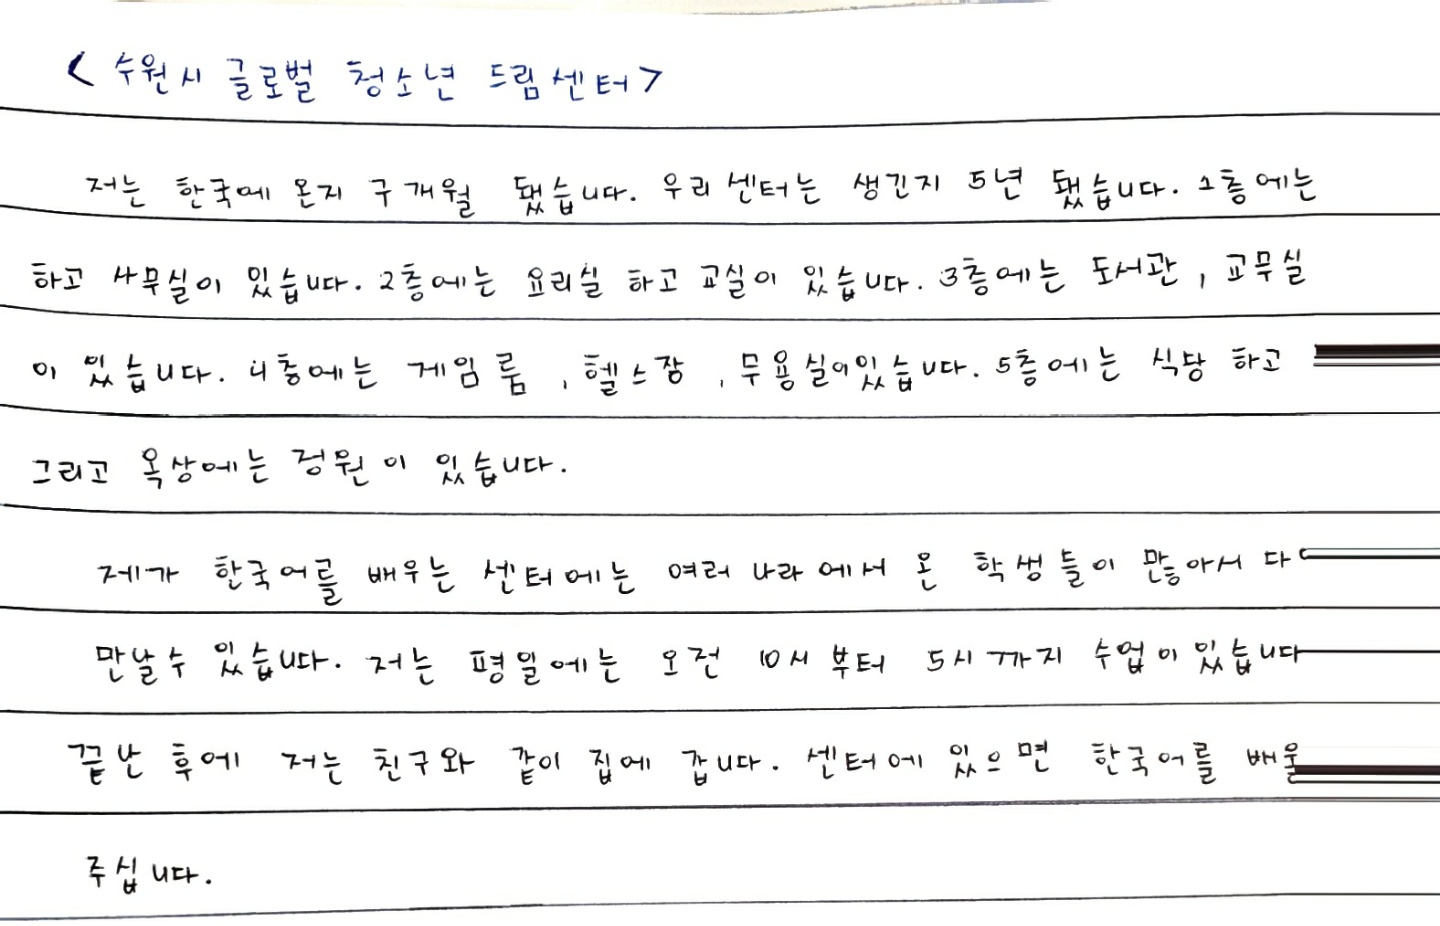 < 수원시 글로벌 청소년 드림센터 >
저는 한국에 온지 구 개월 됐습니다. 우리 센터는 생긴지 5년 됐습니다. 1층에는
하고 사무실이 있습니다. 2층에는 요리실 하고 교실이 있습니다. 3층에는 도서관, 교무실
이 있습니다. 4층에는 게임 룸, 헬스장, 무용실이있습니다. 5층에는 식당 하고
그리고 옥상에는 정원이 있습니다.
제가 한국어를 배우는 센터에는 여러 나라에서 온 학생들이 많아서 다
만날수 있습니다. 저는 평일에는 오전 10시부터 5시까지 수업이 있습니다
끝난 후에 저는 친구와 같이 집에 갑니다. 센터에 있으면 한국어를 배울
주십니다.